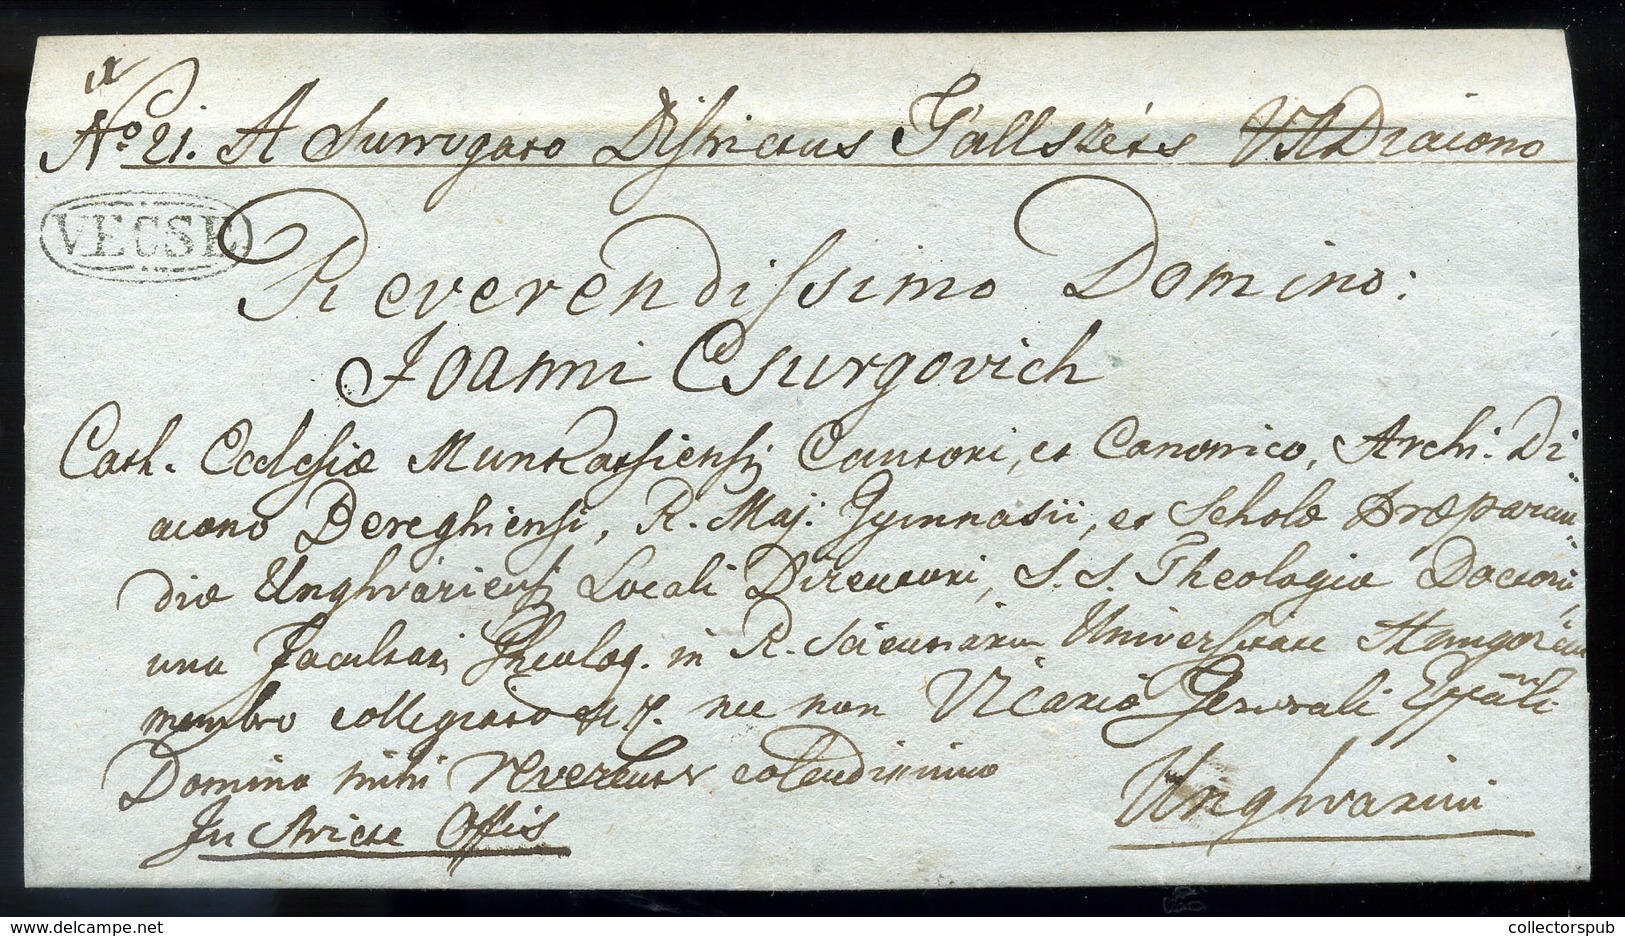 ex
No. 21. A Surrogato Districtus Gállszécs V. A Diacono
VECSE
Reverendissimo Domino:
Joanni Csurgovich
Cath. Ecclesiæ Munkatsiensis Cantori, et Canonico, Archi-Di-
acono Bereghiensi, R. Maj. Gymnasii, et Scholæ Præparan-
diæ Unghváriensis Locali Directori, S. S. Theologiæ Doctori,
una Facultatis Theolog. in R. Scientiarum Universitate Hungarica
membro collegiato nec non Vicario Generali Eppali
Domino mihi reverenter colendissimo
Unghvarini
In Stricte Offis
collectorspub